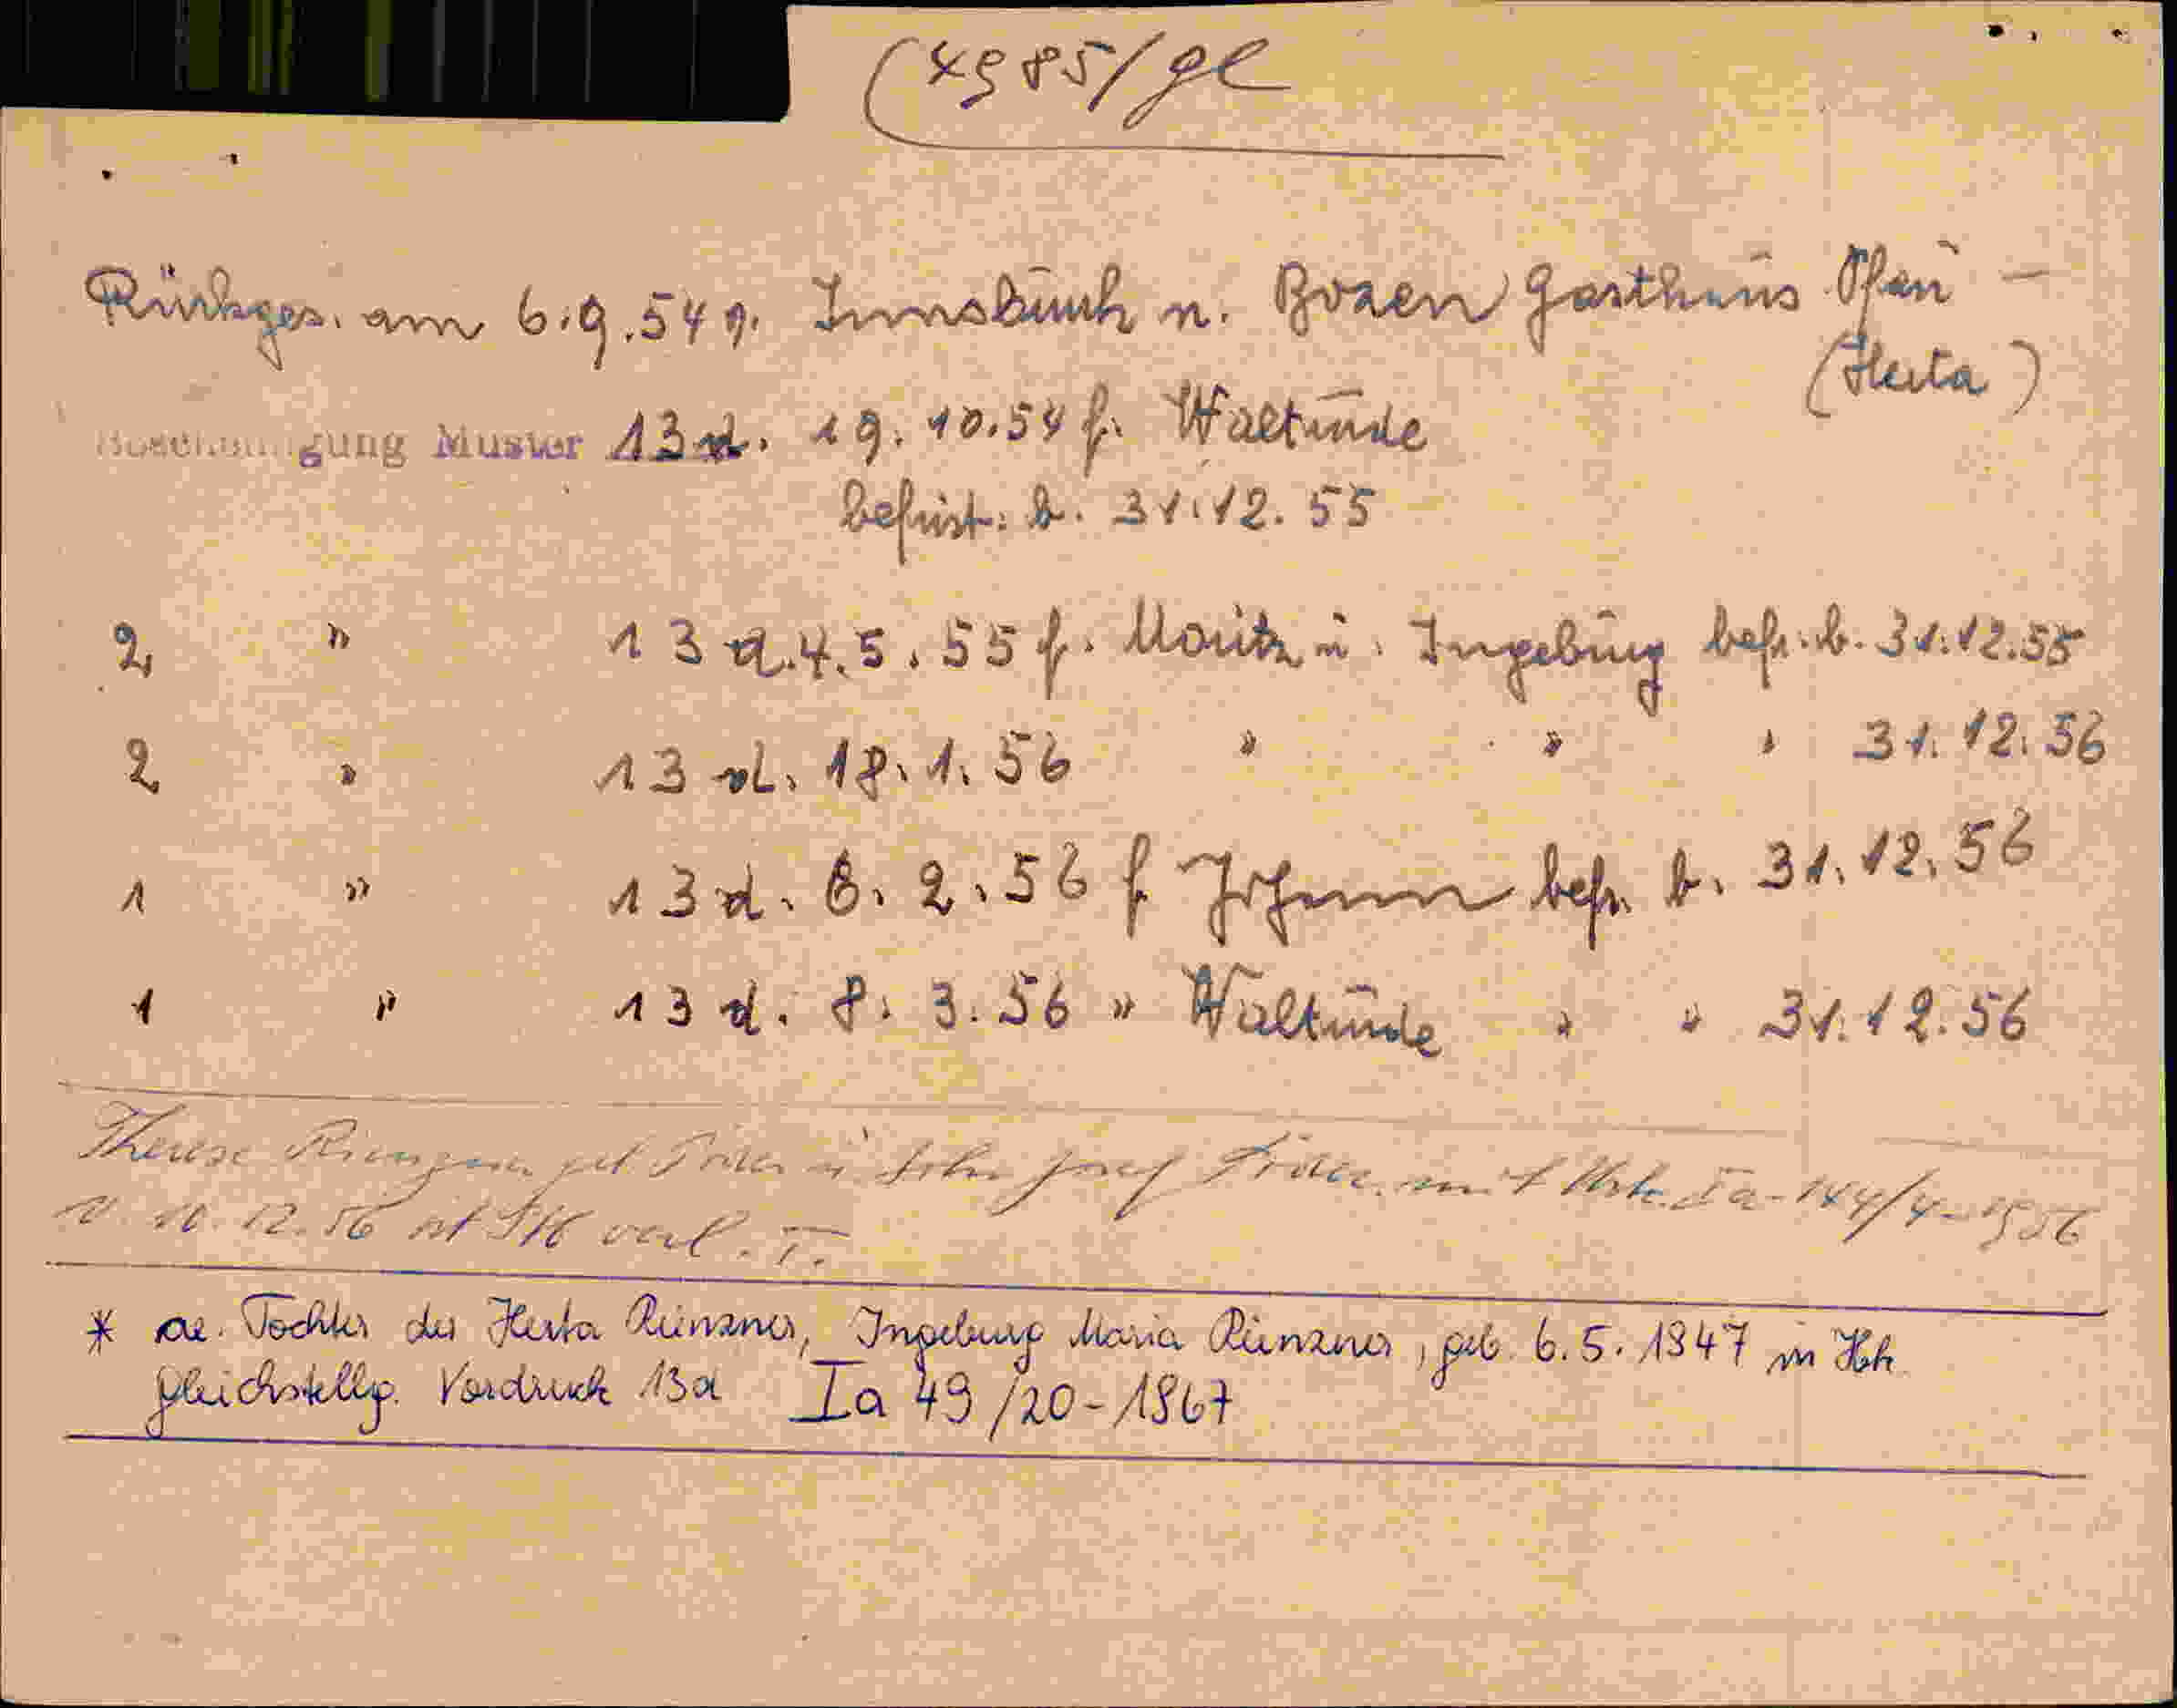 (4985/gl
Rückges. am 6.9.54 n. Innsbruck n. Bozen Gasthaus Pfau –
(Herta)
Bescheinigung Muster 13 d. 19.10.54 f. Waltrude
befrist. b. 31.12.55
2 " 13 d. 4.5.55 f. Moritz u. Ingeburg befr. b. 31.12.55
2 " 13 d. 18.1.56 " " " 31.12.56
1 " 13 d. 6.2.56 f. Johann befr. b. 31.12.56
1 " 13 d. 8.3.56 " Waltrude " " 31.12.56
Therese geb. u. Sohn Josef mit Ia-144/4-1956
v. 10.12.56 verl.
* ae. Tochter der Herta Rienzner, Ingeburg Maria Rienzner, geb. 6.5.1947 in Ibk
Gleichstellg. Vordruck 13d Ia 49/20-1967